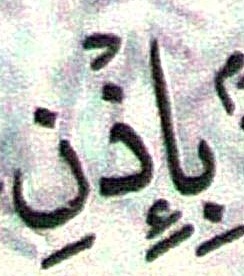 بِإِذْنِ